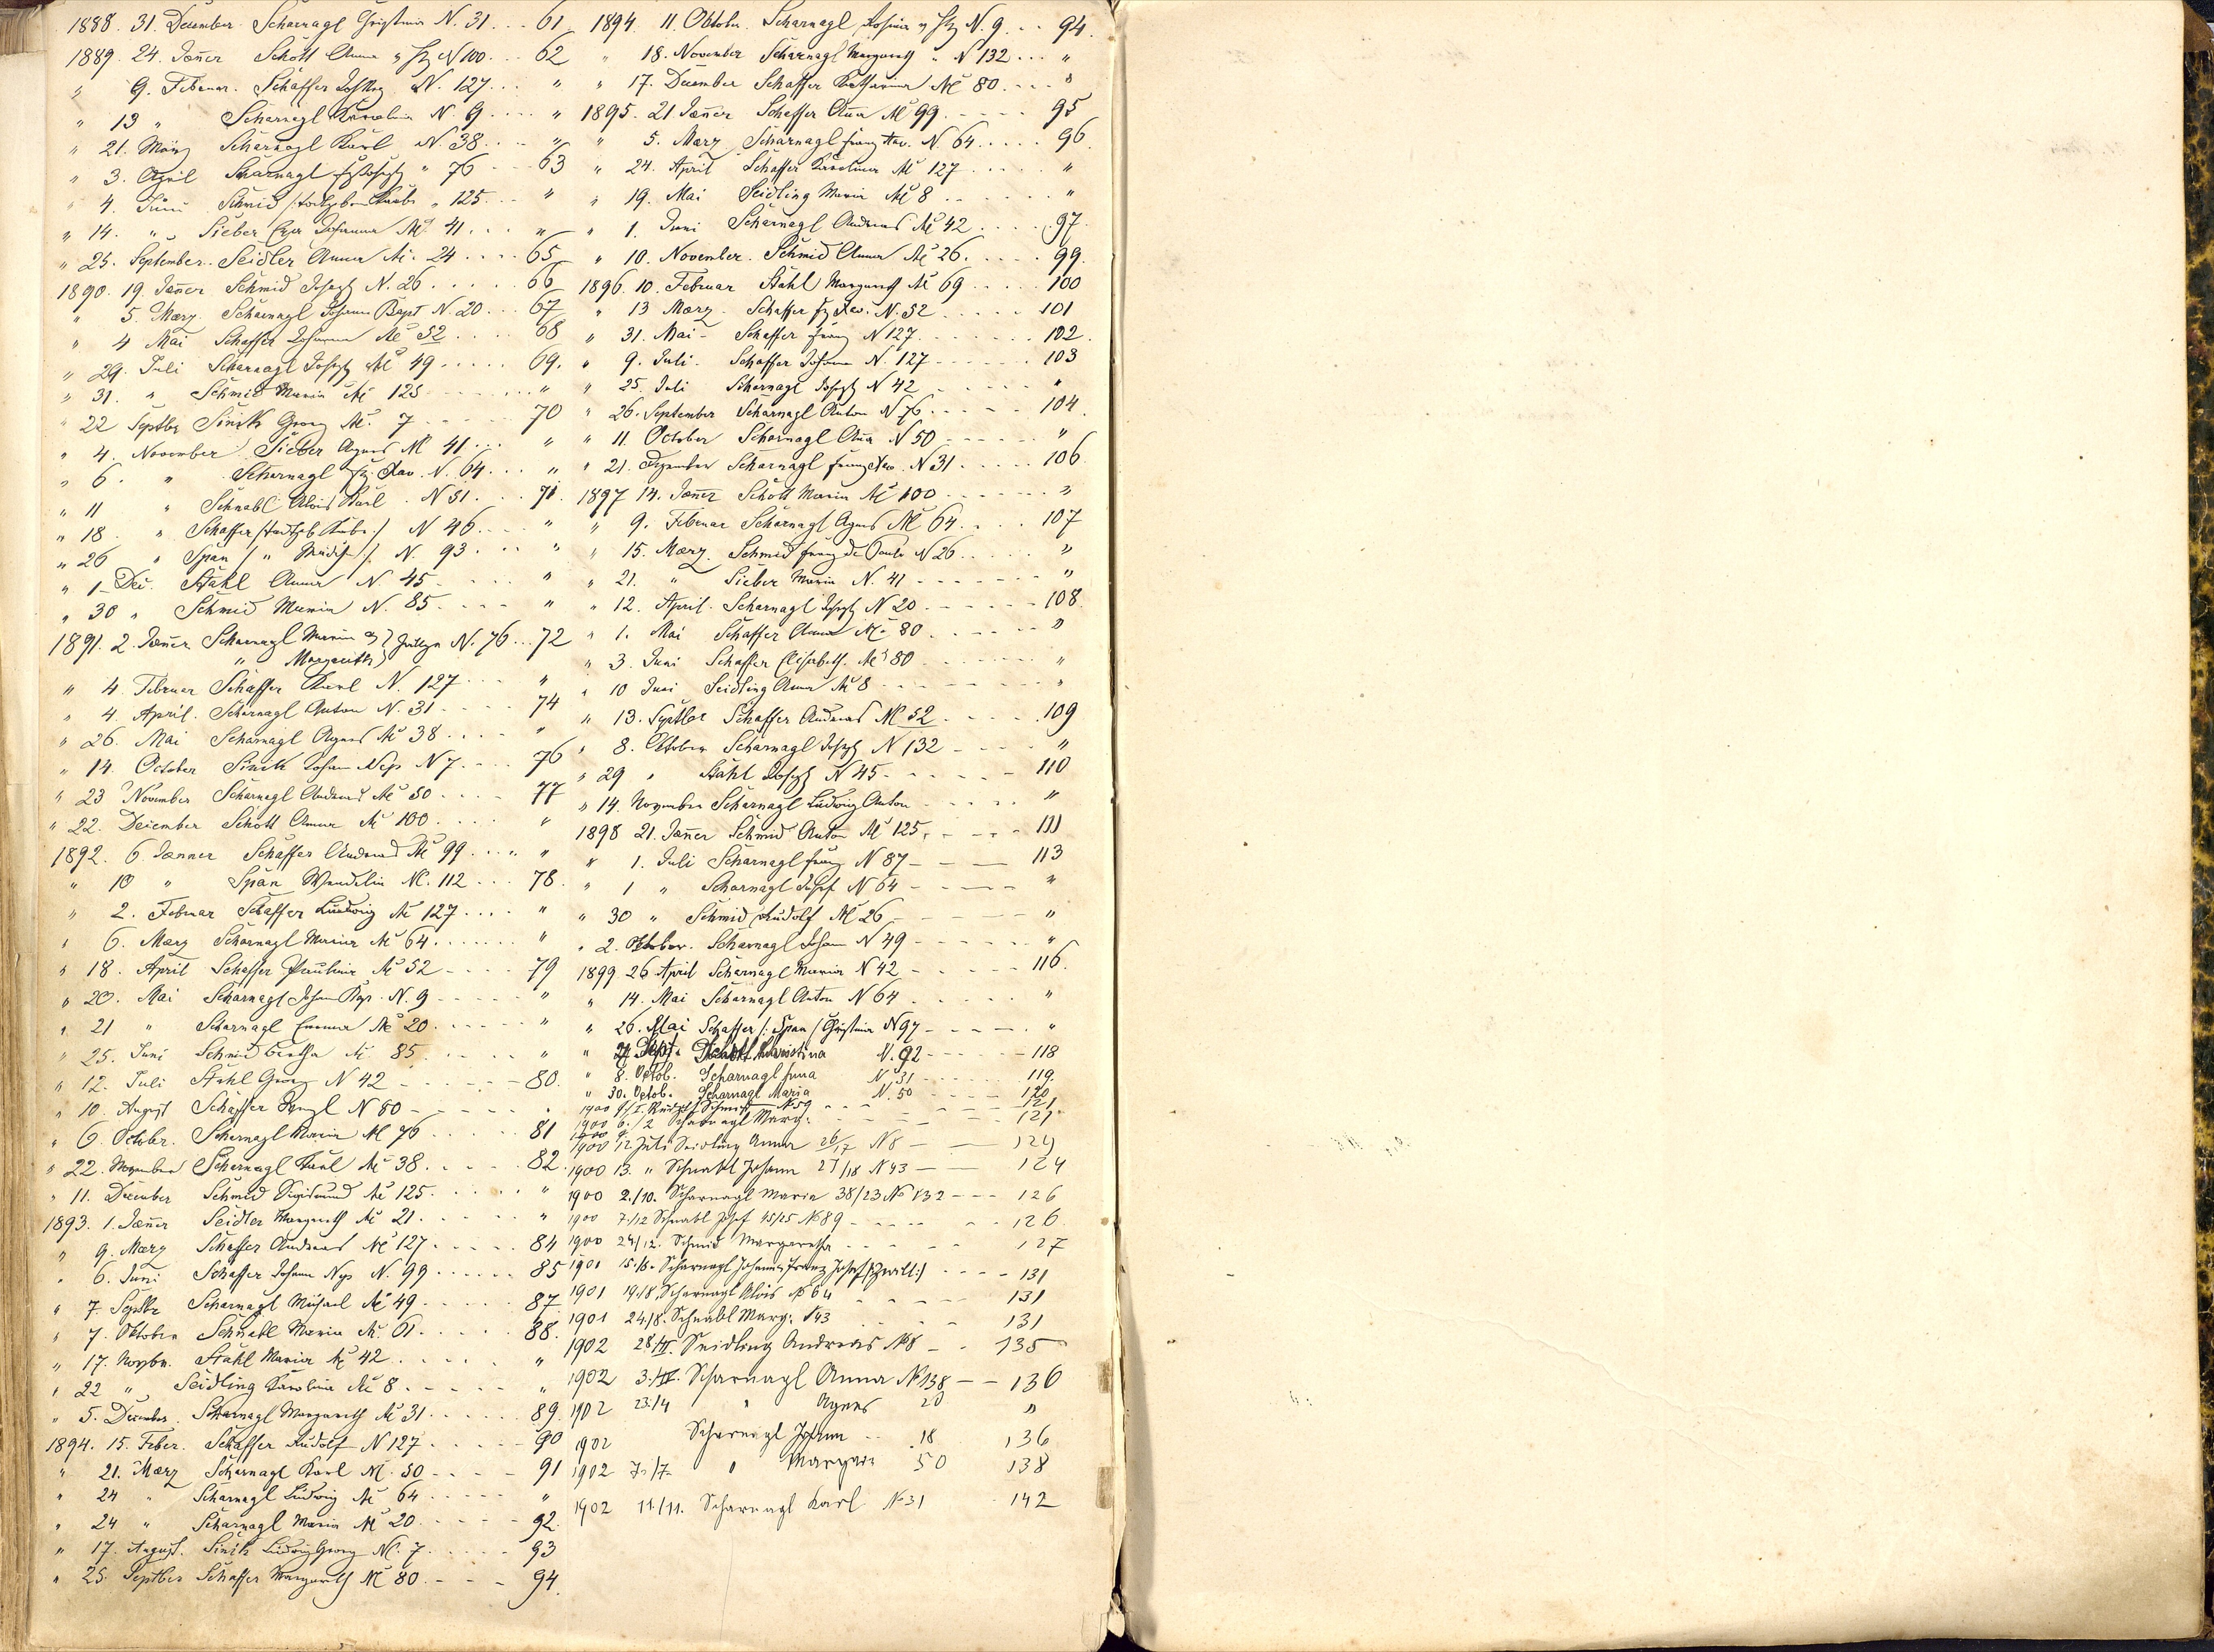 1888. 31. December Scharnagl Christina N. 31 . . . 61
1889. 24. Jäner Schott Anna N 100 . . . 62
" 9. Februar. Schaffer N. 127 . . . "
" 13 " Scharnagl Karolina N. 9 . . . "
" 21. März Scharnagl Karl N. 38 . . . "
" 3. April Scharnagl " 76 . . . 63
" 4. Juni Schmid /todtgeb. Knabe " 125 . . . "
" 14. " Sieber Johanna № 41 . . . "
" 25. September. Seidler Anna № 24 . . . . 65
1890. 19. Jäner Schmid Joseph N. 26 . . . . . 66
" 5. März. Scharnagl Johann Bapt N. 20 . . . 67
" 4 Mai Schaffer Johanna № 52 . . . . 68
" 29. Juli Scharnagl Joseph № 49 . . . . . 69.
" 31. " Schmid Maria № 125 . . . . "
" 22 Septbr Georg №. 7 . . . . 70
" 4. November Sieber Agnes № 41 . . . "
" 6. " Scharnagl Fz. Xav. N. 64 . . . "
" 11 " Schnabl Alois Karl N 51 . . . 71.
" 18. " Schaffer /todtgeb. Knabe/ N 46 . . . "
" 26 " Span / " Mädch./ N. 93 . . . "
" 1. Dec. Stahl Anna N. 45 . . . . "
" 30 " Schmid Maria N. 85 . . . . "
1891. 2. Jäner Scharnagl Maria N. 76 . . . 72
" Margareth
" 4. Februar Schaffer Karl N. 127 . . . "
" 4. April. Scharnagl Anton N. 31 . . . . 74
" 26. Mai Scharnagl Agnes № 38 . . . . "
" 14. October Johann Nep N 7 . . . . 76
" 23 November Scharnagl Andreas № 50 . . . . 77
" 22. December Schott Anna № 100 . . . . "
1892. 6. Jänner Schaffer Andreas № 99 . . . . "
" 10 " Span Wendelin №. 112 . . . 78.
" 2. Februar Schaffer Ludwig № 127 . . . . "
" 6. März Scharnagl Maria № 64 . . . . . "
" 18. April Schaffer Paulina № 52 - . . . 79
" 20. Mai Scharnagl Johann N. 9 - . . . "
" 21 " Scharnagl Emma № 20 . . . . . "
" 25. Juni Schmid Bertha № 85 . . . . "
" 12. Juli Stahl Georg N 42 - . . . . - 80.
" 10. August Schaffer N 80 - . . . . "
" 6. October. Scharnagl Maria № 76 . . . . 81
" 22. November Scharnagl Karl № 38 . . . . 82.
" 11. December Schmid Sigismund № 125 . . . . "
1893. 1. Jäner Seidler Margareth № 21 . . . . "
" 9. März Schaffer Andreas № 127 . . . . . 84
" 6. Juni Schaffer Johann Nep N. 99 . . . . . 85
" 7 Septbr Scharnagl Michael № 49 . . . . . 87
" 7. Oktober Schnabl Maria №. 61 . . . . . 88.
" 17. Novbr. Stahl Maria № 42 . . . . . "
" 22 " Seidling Karolina № 8 . . . . . "
" 5. December. Scharnagl Margareth № 31 . . . . . 89.
1894. 15. Feber. Schaffer Rudolf N 127 . . . . . 90
" 21. März Scharnagl Karl №. 50 . . . . 91
" 24 " Scharnagl Ludwig № 64 . . . . . "
" 24 " Scharnagl Maria № 20 . . . . . 92.
" 17. August. Ludwig Georg №. 7 . . . . . 93
" 25. Septber Schaffer Margareth № 80 . - - - 94.
1894. 11. Oktober. Scharnagl Rosina N. 9 . . . 94.
" 18. November Scharnagl Margareth " N 132 . . . "
" 17. December Schaffer Katharina № 80 . . . . "
1895. 21. Jäner Schaffer Ana № 99 . - - - - 95
" 5. März Scharnagl Franz Xav. N. 64 . . . . . 96
" 24. April Schaffer Karolina № 127 . . . . . "
" 19. Mai Seidling Maria № 8 . . . . . "
" 1. Juni Scharnagl Andreas № 42 . . . . 97.
" 10. November. Schmid Anna № 26 . . . . . 99.
1896. 10. Februar Stahl Margareth № 69 . . . . . 100
" 13 März. Schaffer Fz Xav. N. 52 . . . . . 101
" 31. Mai - Schaffer Franz N 127 . . . . . 102.
" 9. Juli. Schaffer Johann N. 127 - - - - - 103
" 25. Juli Scharnagl Joseph N 42 - - - - "
" 26. September Scharnagl Anton N 76 . . - - - 104.
" 11. October Scharnagl Ana N 50 - - - - - "
" 21. Dezember Scharnagl Franz Xav. N 31 . . . . . 106
1897 14. Jäner Schott Maria № 100 - - - - - "
" 9. Februar Scharnagl Agnes № 64 . . . . 107
" 15. März. Schmid Franz de Paula N 26 . . . . "
" 21. " Sieber Maria N. 41 - - - - - - "
" 12. April. Scharnagl Joseph N 20 . - - - - - 108.
" 1. Mai Schaffer Anna № 80 . . - - - "
" 3. Juni Schaffer Elisabeth. № 80 - - - - - "
" 10 Juni Seidling Anna № 8 - - - - - "
" 13. Septber Schaffer Andreas № 52 . - - - - 109
" 8. Oktober Scharnagl Joseph N 132 - - - - "
" 29 " Stahl Joseph N 45 - - - - - - 110
" 14. November Scharnagl Ludwig Anton - - - - - "
1898 21. Jäner Schmid Anton № 125, - - - - 111
" 1. Juli Scharnagl Franz N 87 - - - 113
" 1 " Scharnagl Josef N 64 - - - - "
" 30 " Schmid Rudolf № 26 - - - - "
" 2. Oktober. Scharnagl Johann N 49 - - - - - "
1899 26 April Scharnagl Maria N 42 - - - - - 116.
" 14. Mai Scharnagl Anton N 64 . . . . . "
" 26. Mai Schaffer /: Span / Christina N 97 - - - - . "
" Sept. Christina N. 92 - - - - - 118
" 8. Octob. Scharnagl N 31 - - - - 119.
" 30. Octob. Scharnagl Maria N. 50 - - - - 120
1900 Rudolf Schmid № 59 - - - - 121.
1900 6./2 Scharnagl Marg. - - - - 121
1900 12 Juli Seidling Anna 26/17 N 8 - - 124
1900 13. " Schnabl Johann 27/18 N 43 - - 124
1900 2./10. Scharnagl Maria 38/23 № 132 - - - 126
1900 7./12 Schnabl Josef 45/25 № 89 - - - - - 126.
1900 24/12. Schmid Margaretha - - - - - 127
1901 15./8. Scharnagl Johann u Franz Josef /:Zwill:/ - - - - 131
1901 19./8. Scharnagl Alois № 64 - - - - - 131
1901 24./8. Schnabl Marg. N 43 - - - - 131
1902 28./II. Seidling Andreas № 8 - - 135
1902 Scharnagl Anna № 138 - - 136
1902 23./4 " Agnes 20 "
1902 Scharnagl Johann - - 18 136
1902 7./7. " 50 138
1902 11./11. Scharnagl Karl № 31 142